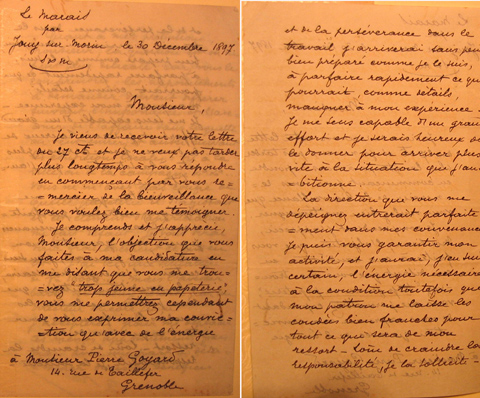 Le Marais
par
Jouy sur Morin le 30 Décembre 1897
S & M
Monsieur,
Je viens de recevoir votre lettre
du 27 ct et je ne veux pas tarder
plus longtemps à vous répondre
en commençant par vous re=
=mercier de la bienveillance que
vous voulez bien me témoigner.
Je comprends et j'apprécie,
Monsieur, l'objection que vous
faites à ma candidature en
me disant que vous me trou=
=vez "trop jeune en papeterie"
vous me permettrez cependant
de vous exprimer ma convic=
=tion qu'avec de l'énergie
à Monsieur Pierre Goyard
14. rue de Taillefer
Grenoble
et de la persévérance dans le
travail j'arriverai sans peine
bien préparé comme je le suis,
à parfaire rapidement ce qui
pourrait, comme détails
manquer à mon expérience.
Je me sens capable d'un grand
effort et je serais heureux de
le donner pour arriver plus
vite à la situation que j'am=
=bitionne.
La direction que vous me
dépeignez entrerait parfaite=
=ment dans mes convenances
Je puis vous garantir mon
activité, et j'aurai, j'en suis
certain, l'énergie nécessaire
à la condition toutefois que
mon patron me laisse les
coudées bien franches pour
tout ce qui sera de mon
ressort_ Loin de craindre la
responsabilité, je la sollicite_